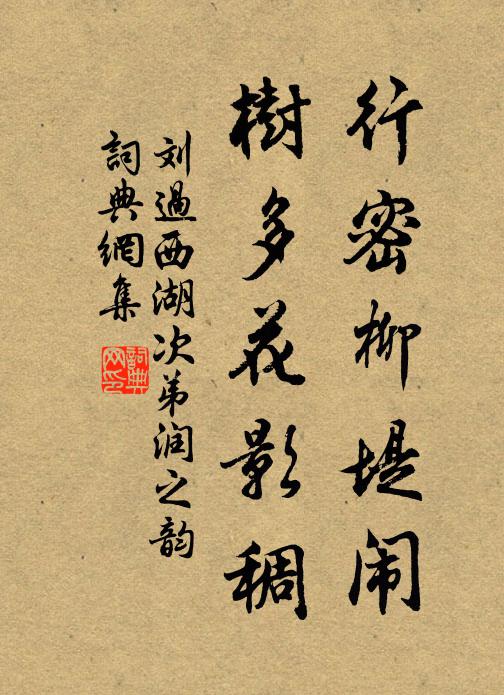 行密柳堤闹
樹多花影稠
刘過西湖次弟润之韵
詞典網集
詞典网印